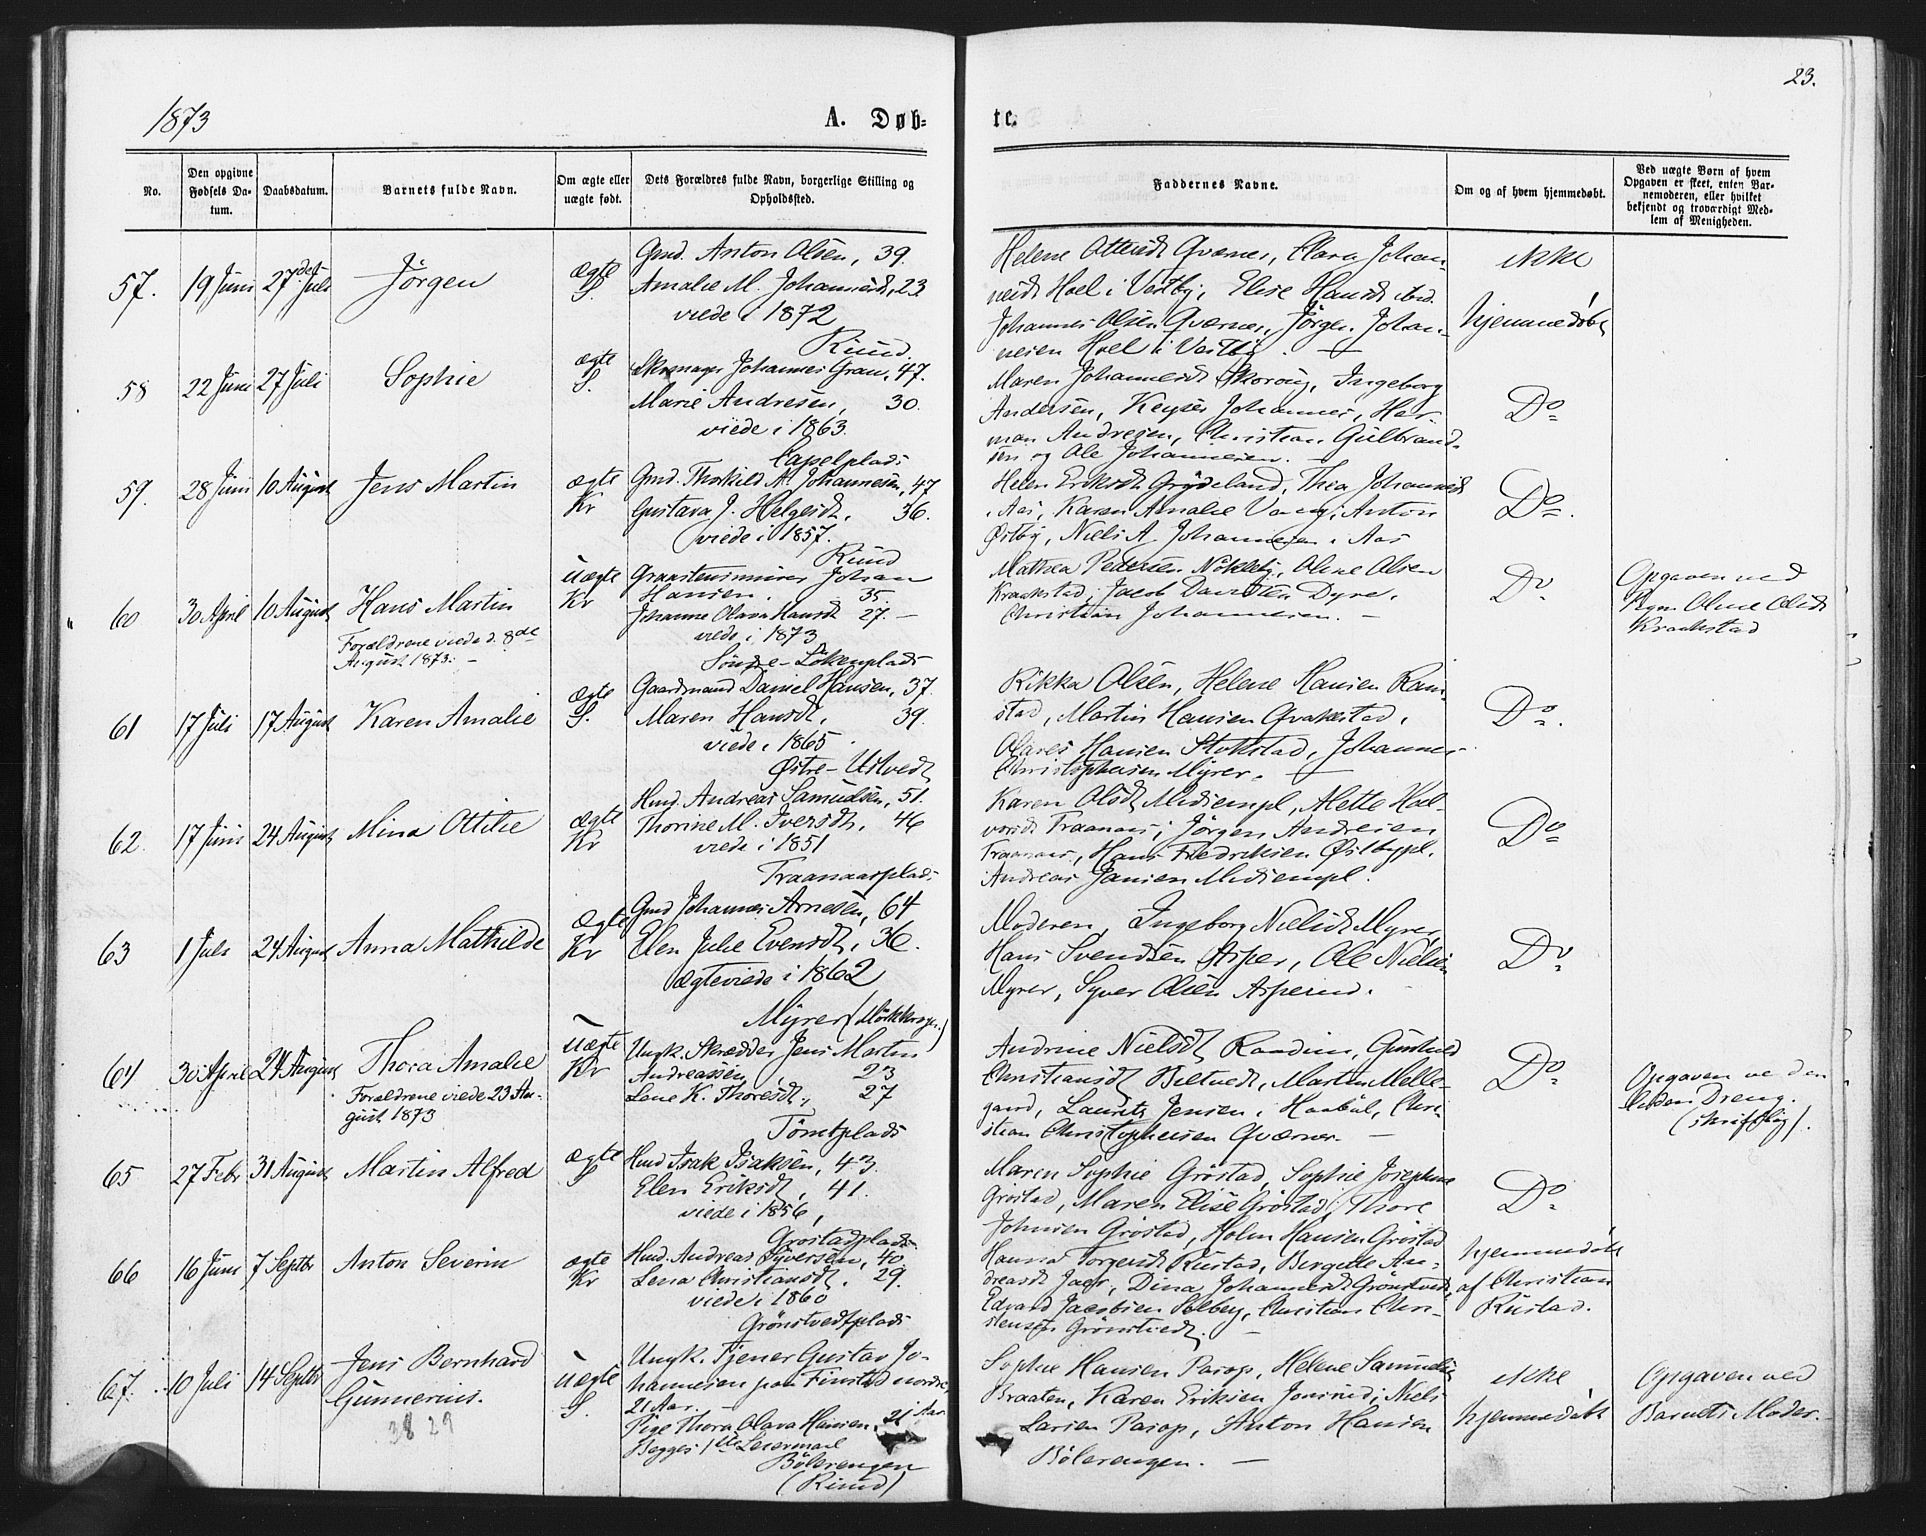 23.
1873
A. Døb-
te.
No.
Den opgivne Fødsels Da-
tum.
Daabsdatum.
Barnets fulde Navn.
Om ægte eller
uægte født.
Dets Forældres fulde Navn, borgerlige Stilling og
Opholdssted.
Faddernes Navne.
Om og af hvem hjemmedøbt.
Ved uægte Børn af hvem
Opgaven er skeet, enten Bar-
nemoderen, eller hvilket
bekjendt og troværdigt Med-
lem af Menigheden.
57.
19 Juni
27de Juli
Jörgen
ægte
S.
Gmd. Anton Olsen, 39.
Amalie M. Johannesdt, 23
viede i 1872
Ruud.
Helene Ottersdt Qværner, Clara Johan-
nesdt Hoel i Vestby, Elise Hansdt ibid.
Johannes Olsen Qværner, Jörgen Johan-
nesen Hoel i Vestby. —
ikke
hjemmedöbt
58
22 Juni
27 Juli
Sophie
ægte
S.
Skomager Johannes Gran, 47.
Marie Andresen, 30.
viede i 1863.
Capelplads
Maren Johannesdt, Ingeborg
Andersen, Keyser Johannes, Her-
man Andresen, Christian Gulbrand-
sen og Ole Johannesen. —
Do
59.
28 Juni
10 August
Jens Martin
ægte
Kr
Gmd. Thorkild A. Johannesen, 47
Gustava J. Helgesdt, 36.
viede i 1857.
Ruud
Helen Eriksdt Grydeland, Thea Johannesdt
i Aas, Karen Amalie, Anton
Østby, Niels A. Johannesen i Aas
Do.
60
30 April
10 August
Hans Martin
Forældrene viede d. 8de
August 1873. —
uægte
Kr
Graastensmurer Johan
Hansen, 35.
Johanne Olava Hansdt 27. —
viede i 1873
Söndre-Lökenplads
Mathea Pedersen Nökleby, Oline Olsen
Kraakstad, Jacob Davidsen Dyre,
Christian Johannesen. —
Do
Opgaven ved
Pigen Oline Olsdt
Kraakstad
61
17 Juli
17 August
Karen Amalie
ægte
S.
Gaardmand Daniel Hansen, 37.
Maren Hansdt, 39
viede i 1865
Østre-Ustvedt
Rikka Olsen, Helene Hansen Ram-
stad, Martin Hansen Qvakestad,
Olaves Hansen Stokstad, Johannes
Christophersen Myrer. —
Do.
62.
17 Juni
24 August
Mina Ottilie
ægte
Kr
Hmd. Andreas Samuelsen, 51.
Thorine M. Iversdt, 46
viede i 1851
Traanaasplads
Karen Olsdt, Mette Hal-
vorsdt Traanaas, Jörgen Andresen
Traanaas, Hans Fredriksen Østbypl.
Andreas Jansen
Do
63
1 Juli
24 August
Anna Mathilde
ægte
Kr
Gmd Johannes Arnesen, 64
Elen Julie Evensdt, 36.
ægteviede i 1862
Myrer
Moderen, Ingeborg Nielsdt Myrer,
Hans Svendsen Asper, Ole Nielsen
Myrer, Syver Olsen Asperud.
Do
64
30 April
24 August
Thora Amalie
Forældrene viede 23 Au-
gust 1873
uægte
Kr
Ungk. Skrædder Jens Martin
Andreassen 23
Lene K. Thoresdt, 27
Tömtplads
Andrine Nielsdt, Gunhild
Christiansdt Bultvedt, Martin Melle-
gaard, Laurits Jensen i Haabül, Chri-
stian Christophersen Qværner. —
Do
Opgaven ved den
(skriftlig).
65
27 Febr
31 August
Martin Alfred
ægte
S
Hmd Isak Isaksen, 43.
Elen Eriksdt, 41.
viede i 1856,
Gröstadplads
Maren Sophie Gröstad, Sophie Josephine
Gröstad, Maren Elise Gröstad, Thore
Johnsen Gröstad, Holm Hansen Gröstad
Do
66
16 Juni
7 Septbr
Anton Severin
ægte
Kr
Hmd. Andreas Syversen, 40
Lena Christiansdt, 29.
viede i 1860
Grönstvedtplads
Hanna Torgersdt Rustad, Bergitte An-
dreasdt Jaer, Dina Johannesdt Grönstvedt,
Edvard Jacobsen Solberg, Christian Chri-
stensen Grönstvedt. —
hjemmedöbt
af Christian
Rustad.
67.
10 Juli
14 Septbr
Jens Bernhard
Gunnerius.
38 29
uægte
S.
Ungk. Tjener Gustav Jo-
hannesen paa Finstad nordre,
21 Aar. —
Pige Thora Olava Hansen, 21 Aar
Begges 1ste Leiermaal
Bölerengen
(Ruud)
Sophie Hansen Parop, Helene Samuelsen
Braaten, Karen Eriksen Jonsrud, Niels
Larsen Parop, Anton Hansen
Bölerengen. —
ikke
hjemmedöbt
Opgaven ved
Barnets Moder. —